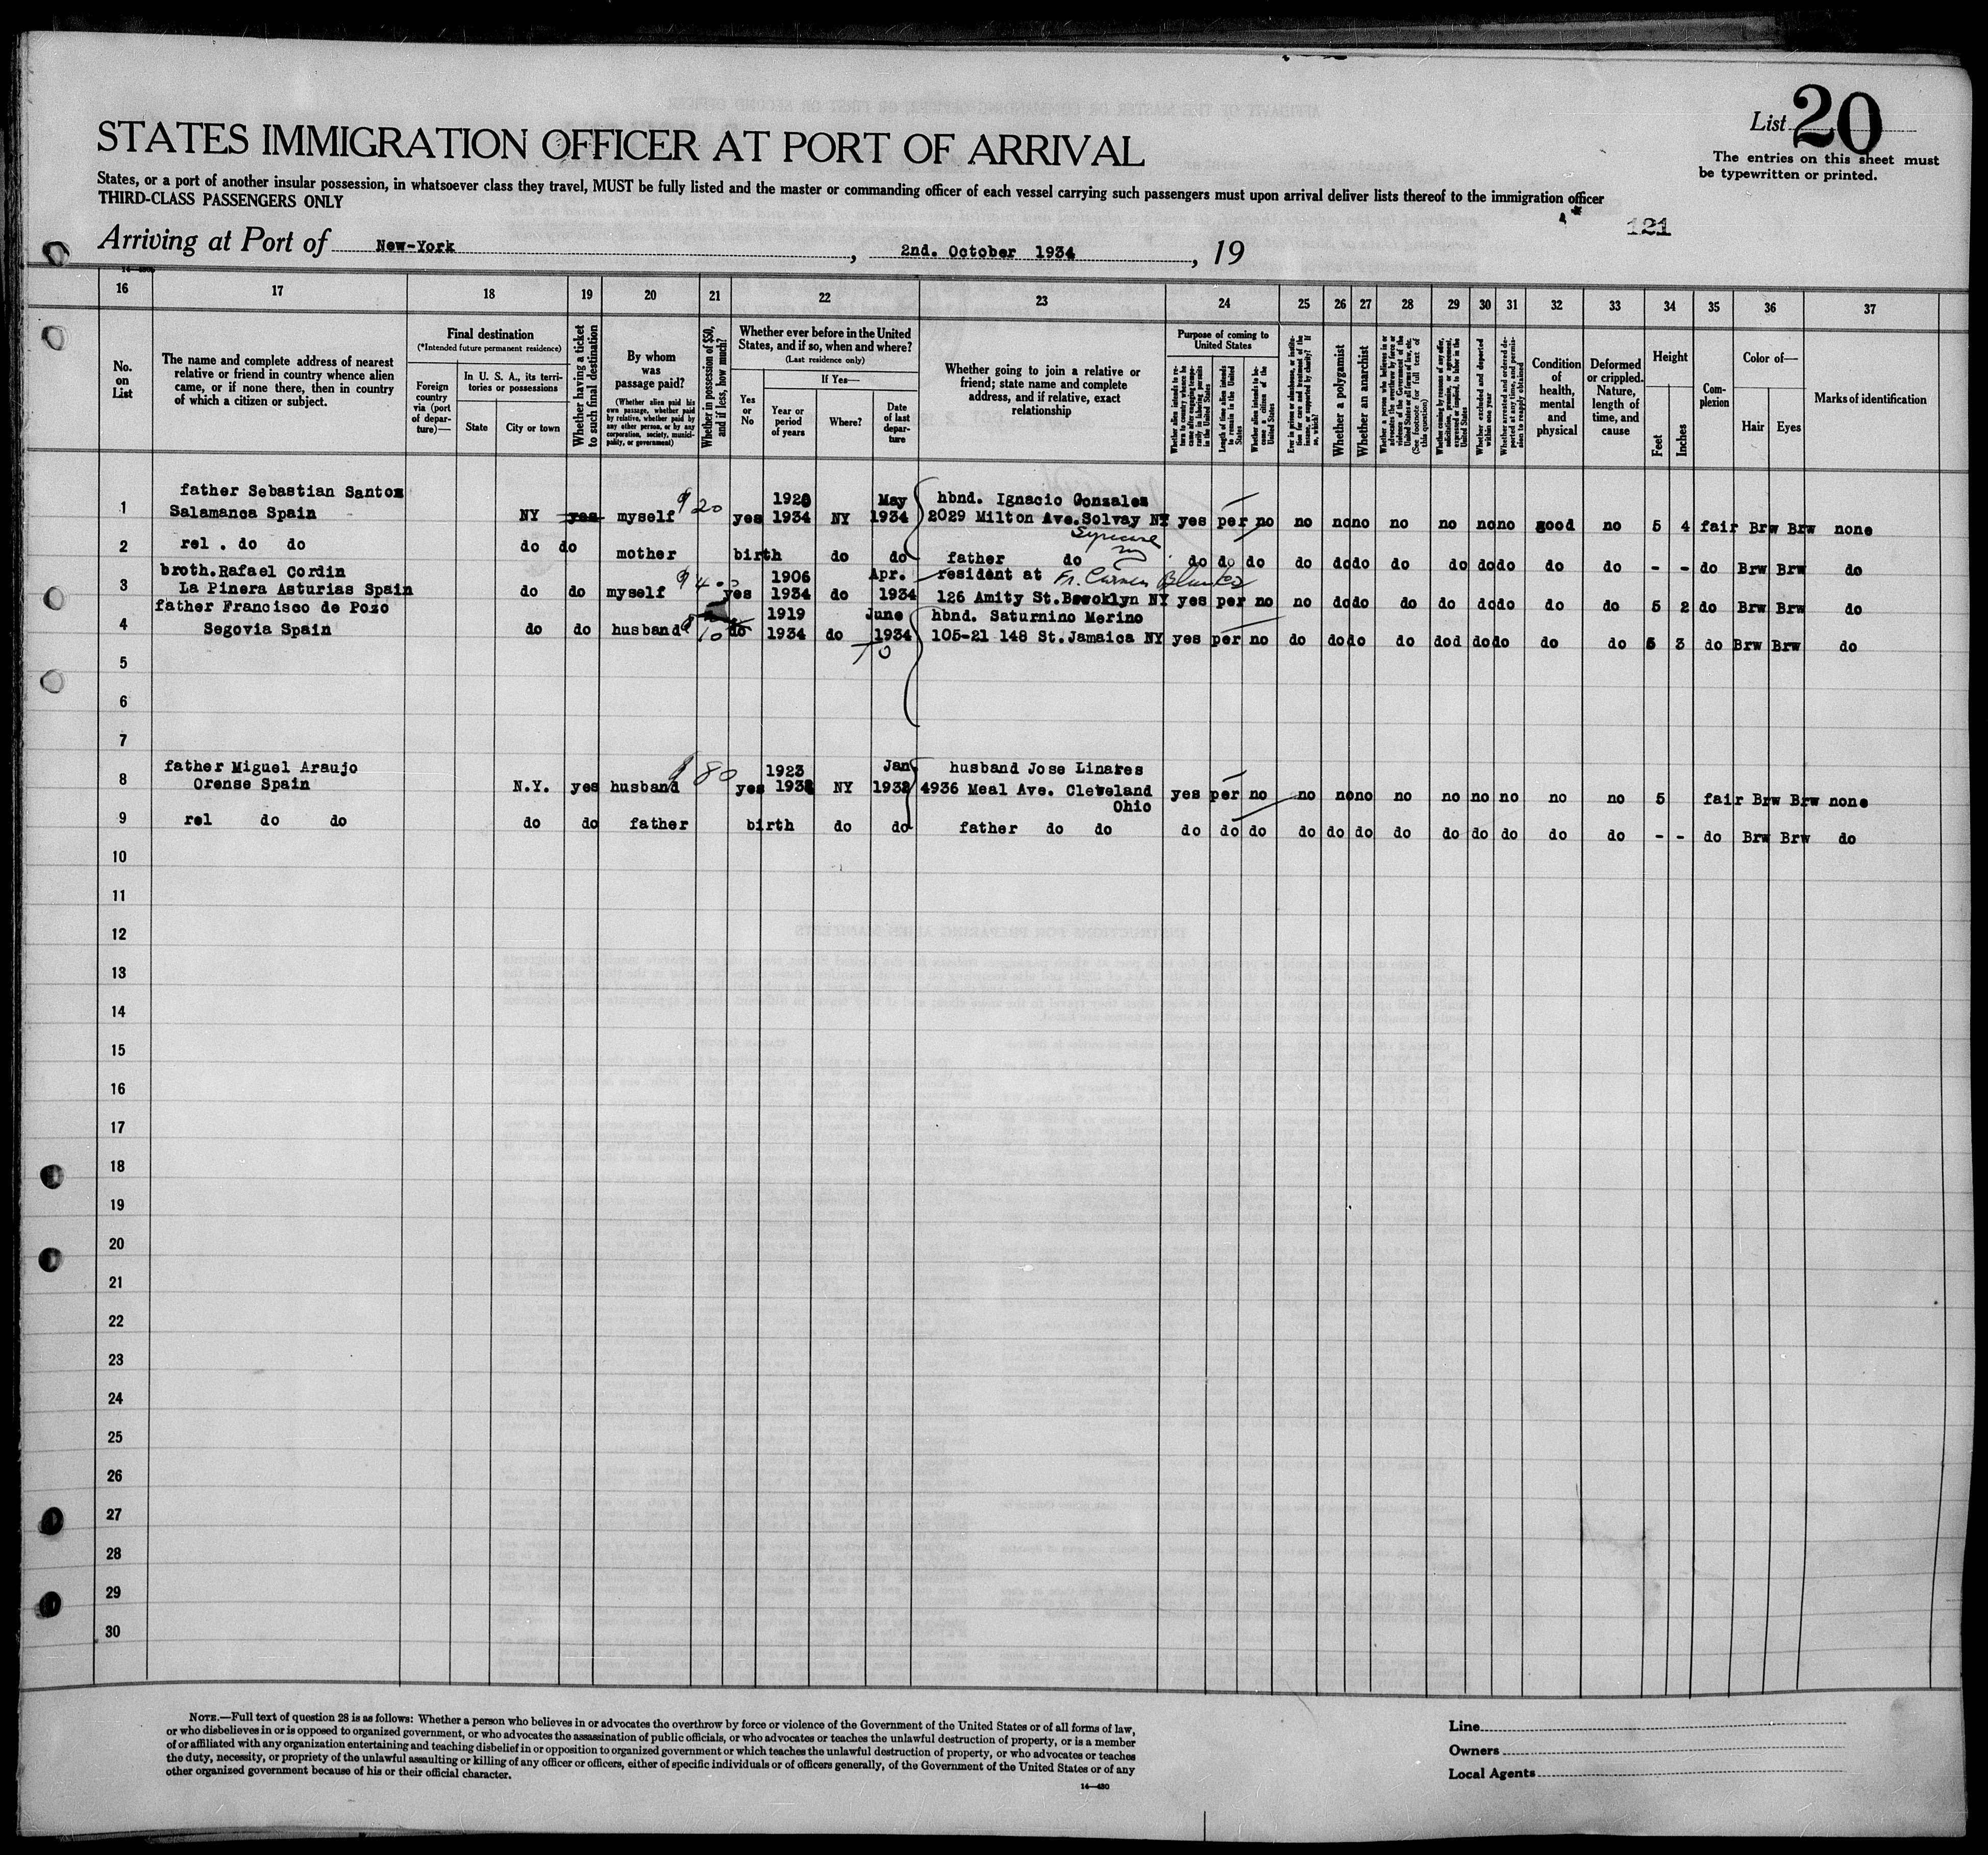 List 20
STATES IMMIGRATION OFFICER AT PORT OF ARRIVAL
The entries on this sheet must
be typewritten or printed.
States, or a port of another insular possession, in whatsoever class they travel, MUST be fully listed and the master or commanding officer of each vessel carrying such passengers must upon arrival deliver lists thereof to the immigration officer
THIRD-CLASS PASSENGERS ONLY
121
Arriving at Port of New-York, 2nd. October 1934, 19
16 17 18 19 20 21 22 23 24 25 26 27 28 29 30 31 32 33 34 35 36 37
No. on List
The name and complete address of nearest relative or friend in country whence alien came, or if none there, then in country of which a citizen or subject.
Final destination
(*Intended future permanent residence)
Foreign country via (port of departure)—
In U. S. A., its territories or possessions
State
City or town
Whether having a ticket to such final destination
By whom was passage paid?
(Whether alien paid his own passage, whether paid by relative, whether paid by any other person, or by any corporation, society, municipality, or government)
Whether in possession of $50, and if less, how much?
Whether ever before in the United States, and if so, when and where?
(Last residence only)
Yes or No
If Yes—
Year or period of years
Where?
Date of last departure
Whether going to join a relative or friend; state name and complete address, and if relative, exact relationship
Purpose of coming to United States
Length of time alien intends to remain in the United States
Whether alien intends to become a citizen of the United States
Whether a polygamist
Whether an anarchist
(See footnote for full text of this question)
Whether excluded and deported within one year
Condition of health, mental and physical
Deformed or crippled. Nature, length of time, and cause
Height
Feet
Inches
Complexion
Color of—
Hair
Eyes
Marks of identification
father Sebastian Santos 1920 May hbnd. Ignacio Gonzales
1 Salamanca Spain NY yes myself 20 yes 1934 NY 1934 2029 Milton Ave.Solvay NY yes per no no no no no no no no good no 5 4 fair Brw Brw none
Syracuse
2 rel . do do do do mother birth do do father do do do do do do do do do do do do do - - do Brw Brw do
broth.Rafael Cordin 1906 Apr. resident at
3 La Pinera Asturias Spain do do myself 40 yes 1934 do 1934 126 Amity St.Brooklyn NY yes per no no do do do do do do do do 5 2 do Brw Brw do
father Francisco de Pozo 1919 June hbnd. Saturnino Merino
4 Segovia Spain do do husband 10 do 1934 do 1934 105-21 148 St.Jamaica NY yes per no do do do do dod do do do do 5 3 do Brw Brw do
5
6
7
father Miguel Araujo 1923 Jan husband Jose Linares
8 Orense Spain N.Y. yes husband 80 yes 1932 NY 1932 4936 Meal Ave. Cleveland yes per no no no no no no no no no no 5 fair Brw Brw none
Ohio
9 rel do do do do father birth do do father do do do do do do do do do do do do do do - - do Brw Brw do
10
11
12
13
14
15
16
17
18
19
20
21
22
23
24
25
26
27
28
29
30
NOTE.—Full text of question 28 is as follows: Whether a person who believes in or advocates the overthrow by force or violence of the Government of the United States or of all forms of law,
or who disbelieves in or is opposed to organized government, or who advocates the assassination of public officials, or who advocates or teaches the unlawful destruction of property, or is a member
of or affiliated with any organization entertaining and teaching disbelief in or opposition to organized government or which teaches the unlawful destruction of property, or who advocates or teaches
the duty, necessity, or propriety of the unlawful assaulting or killing of any officer or officers, either of specific individuals or of officers generally, of the Government of the United States or of any
other organized government because of his or their official character.
14—430
Line
Owners
Local Agents